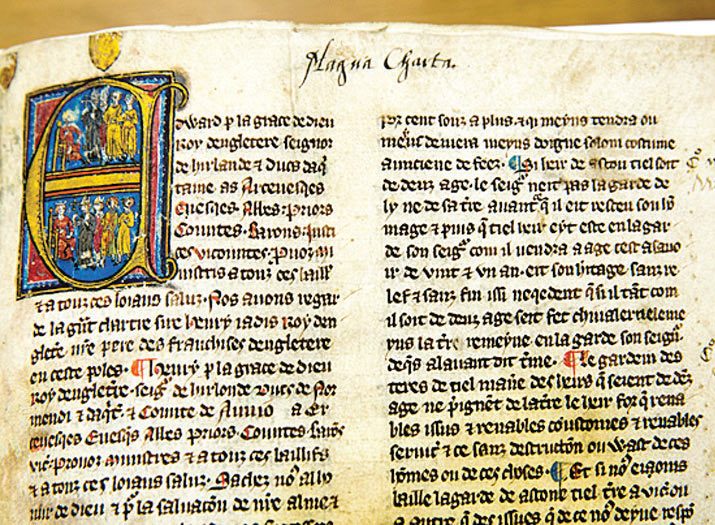 Magna Charta.
Edward p la grace de dieu
Roy dengletere seignor
de hirlande & ducs daq
taine as Arceuesqes
Euesqes Abbes Priors
Countes Barons Justi
ces vicountes Prouoz mi
nistris a touz ces baill
& a touz ces loiaus saluz. Nos auons regar
de la gnt chartre sire henry iadis Roy den
gletre nre pere des franchises dengletere
en ceste poles. Henry p la grace de dieu
roy dengletre seigr de hirlonde Ducs de Nor
mendi & daqt & Counte de a Er
ceuesqes Euesqs Abbes Priors Countes barons
vic Prouoz ministres & a touz ces baillifs
& a touz ces loiaus saluz. Sachez no ally
nur de dieu & p la salvaton de nre alme &
por cent souz a plus. & qi meyns tendra ou
meins deuiera meyns doigne solom coustume
aunciene de feez. Si heir de ascou tiel soit
de deuz age. le seigr neit pas la garde de
ly ne de sa tre auant q il eit resceu son ho
mage & puis q tiel heir eyt este en la gar
de son seigr com il vendra a age cest a sauo
ir de vint & vn an. eit son heritage sanz re
lef & sanz fin issi neqedent q si il tant com
il soit de deuz age seit fet chiualer ieleme
yns la tre remeyne en la garde son seign
deqs al auant dit tme. Le gardein des
teres de tiel mane des heirs q serent de deuz
age ne pignent de la tre le heir for q rena
bles issus & renables coustomes & renables
seruic & ce sanz destructon ou wast de ces
homes ou de ces choses. Et si no eioms
baille la garde de ascone tiel tre a vic ou
a autre q des issues de ce no deyue respo